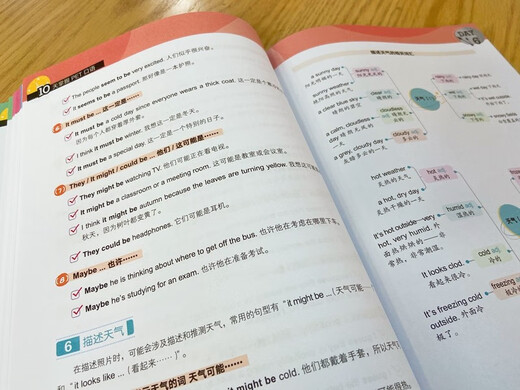 10 天搞定 PET 口语
The people seem to be very excited. 人们似乎很兴奋。
It seems to be a passport. 那好像是一本护照。
6 It must be ... 这一定是……
It must be a cold day since everyone wears a thick coat. 这一定是个
因为每个人都穿着厚外套。
I think it must be winter. 我想这一定是冬天。
It must be a special day. 这一定是一个特别的日子。
7 They / It might / could be ... 他们 / 这可能是……
They might be watching TV. 他们可能正在看电视。
It might be a classroom or a meeting room. 这可能是教室或会议室。
I think it might be autumn because the leaves are turning yellow. 我想这可
秋天，因为树叶都变黄了。
They could be headphones. 它们可能是耳机。
8 Maybe ... 也许……
Maybe he is thinking about where to get off the bus. 也许他在考虑在哪里下车。
Maybe he's studying for an exam. 也许他在准备考试。
6 描述天气
在描述照片时，可能会涉及描述和推测天气，常用的句型有 “it might be ... (天气可能
和 “it looks like ... (看起来……)”。
天气的词 天气可能……
might be cold. 他们都戴着手套，所以天气
DAY 6
描述天气的相关词汇
a sunny day
sunny
a sunny day
晴朗的一天
a clear blue sky
晴朗的蓝天
a calm, cloudless day
cloudless
cloudy
a grey, cloudy day
hot weather
炎热的天气
hot
炎热的
a hot, dry day
炎热干燥的一天
It's hot outside-very hot, very humid. 外面热烘烘的——非常热，非常潮湿。
humid
湿热的
It looks clod.
看起来很冷。
cold
冷的
It's freezing cold outside. 外面冷极了。
freezing